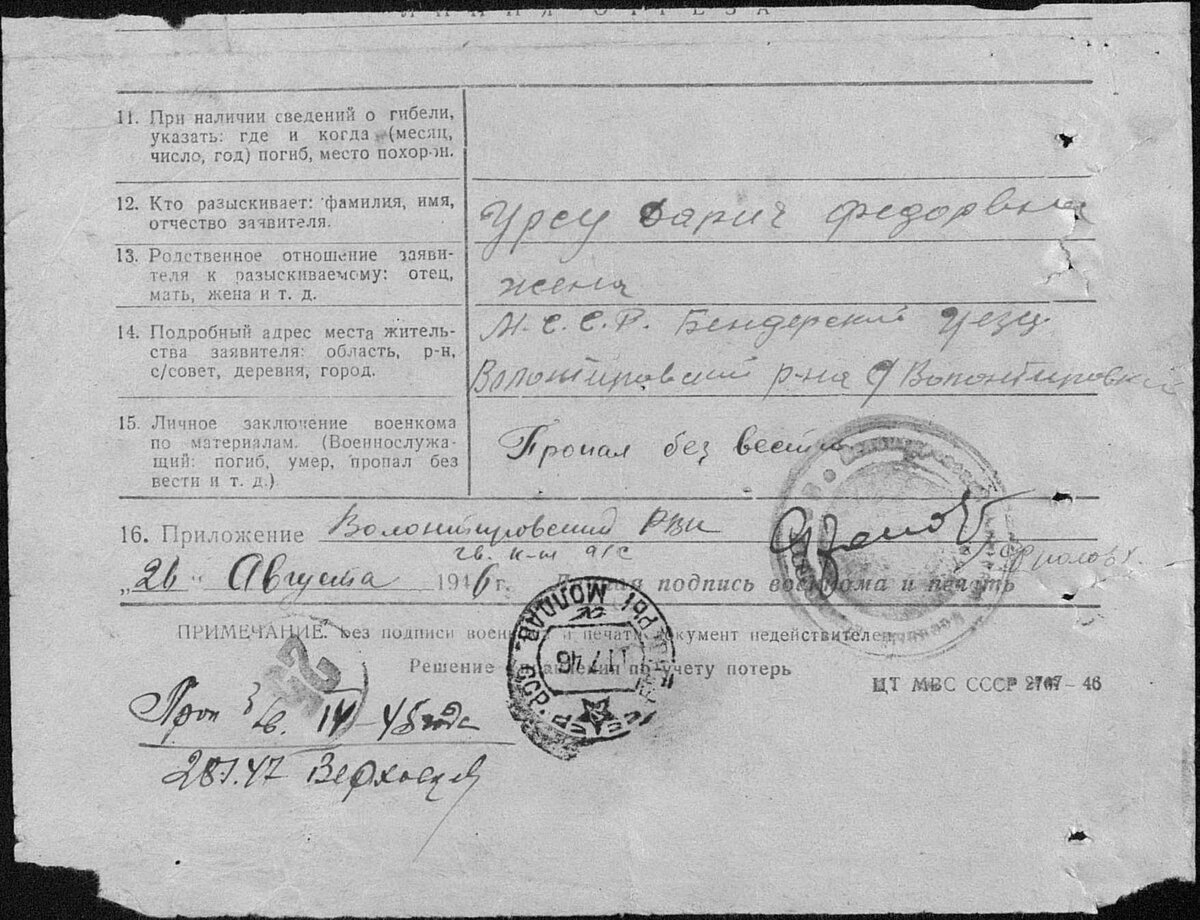 ЛИНИЯ ОТРЕЗА
11. При наличии сведений о гибели,
указать: где и когда (месяц,
число, год) погиб, место похорон.
12. Кто разыскивает: фамилия, имя,
отчество заявителя.
Урсу Дария Федоровны
13. Родственное отношение заяви-
теля к разыскиваемому: отец,
мать, жена и т. д.
жена
14. Подробный адрес места житель-
ства заявителя: область, р-н,
с/совет, деревня, город.
М.С.С.Р. Бендерский уезд
Волонтировский р-на с/Волонтировка
15. Личное заключение военкома
по материалам. (Военнослужа-
щий: погиб, умер, пропал без
вести и т. д.)
Пропал без вести
16. Приложение Волонтировский РВК
гв. к-н а/с
„26" Августа 1946 г. подпись военкома и печать
ПРИМЕЧАНИЕ. Без подписи и печати документ недействителен
Решение по учету потерь
ЦТ МВС СССР 2767—46
МОЛДАВ. ССР.
11 7 46
Проп
45 года
28.1.47